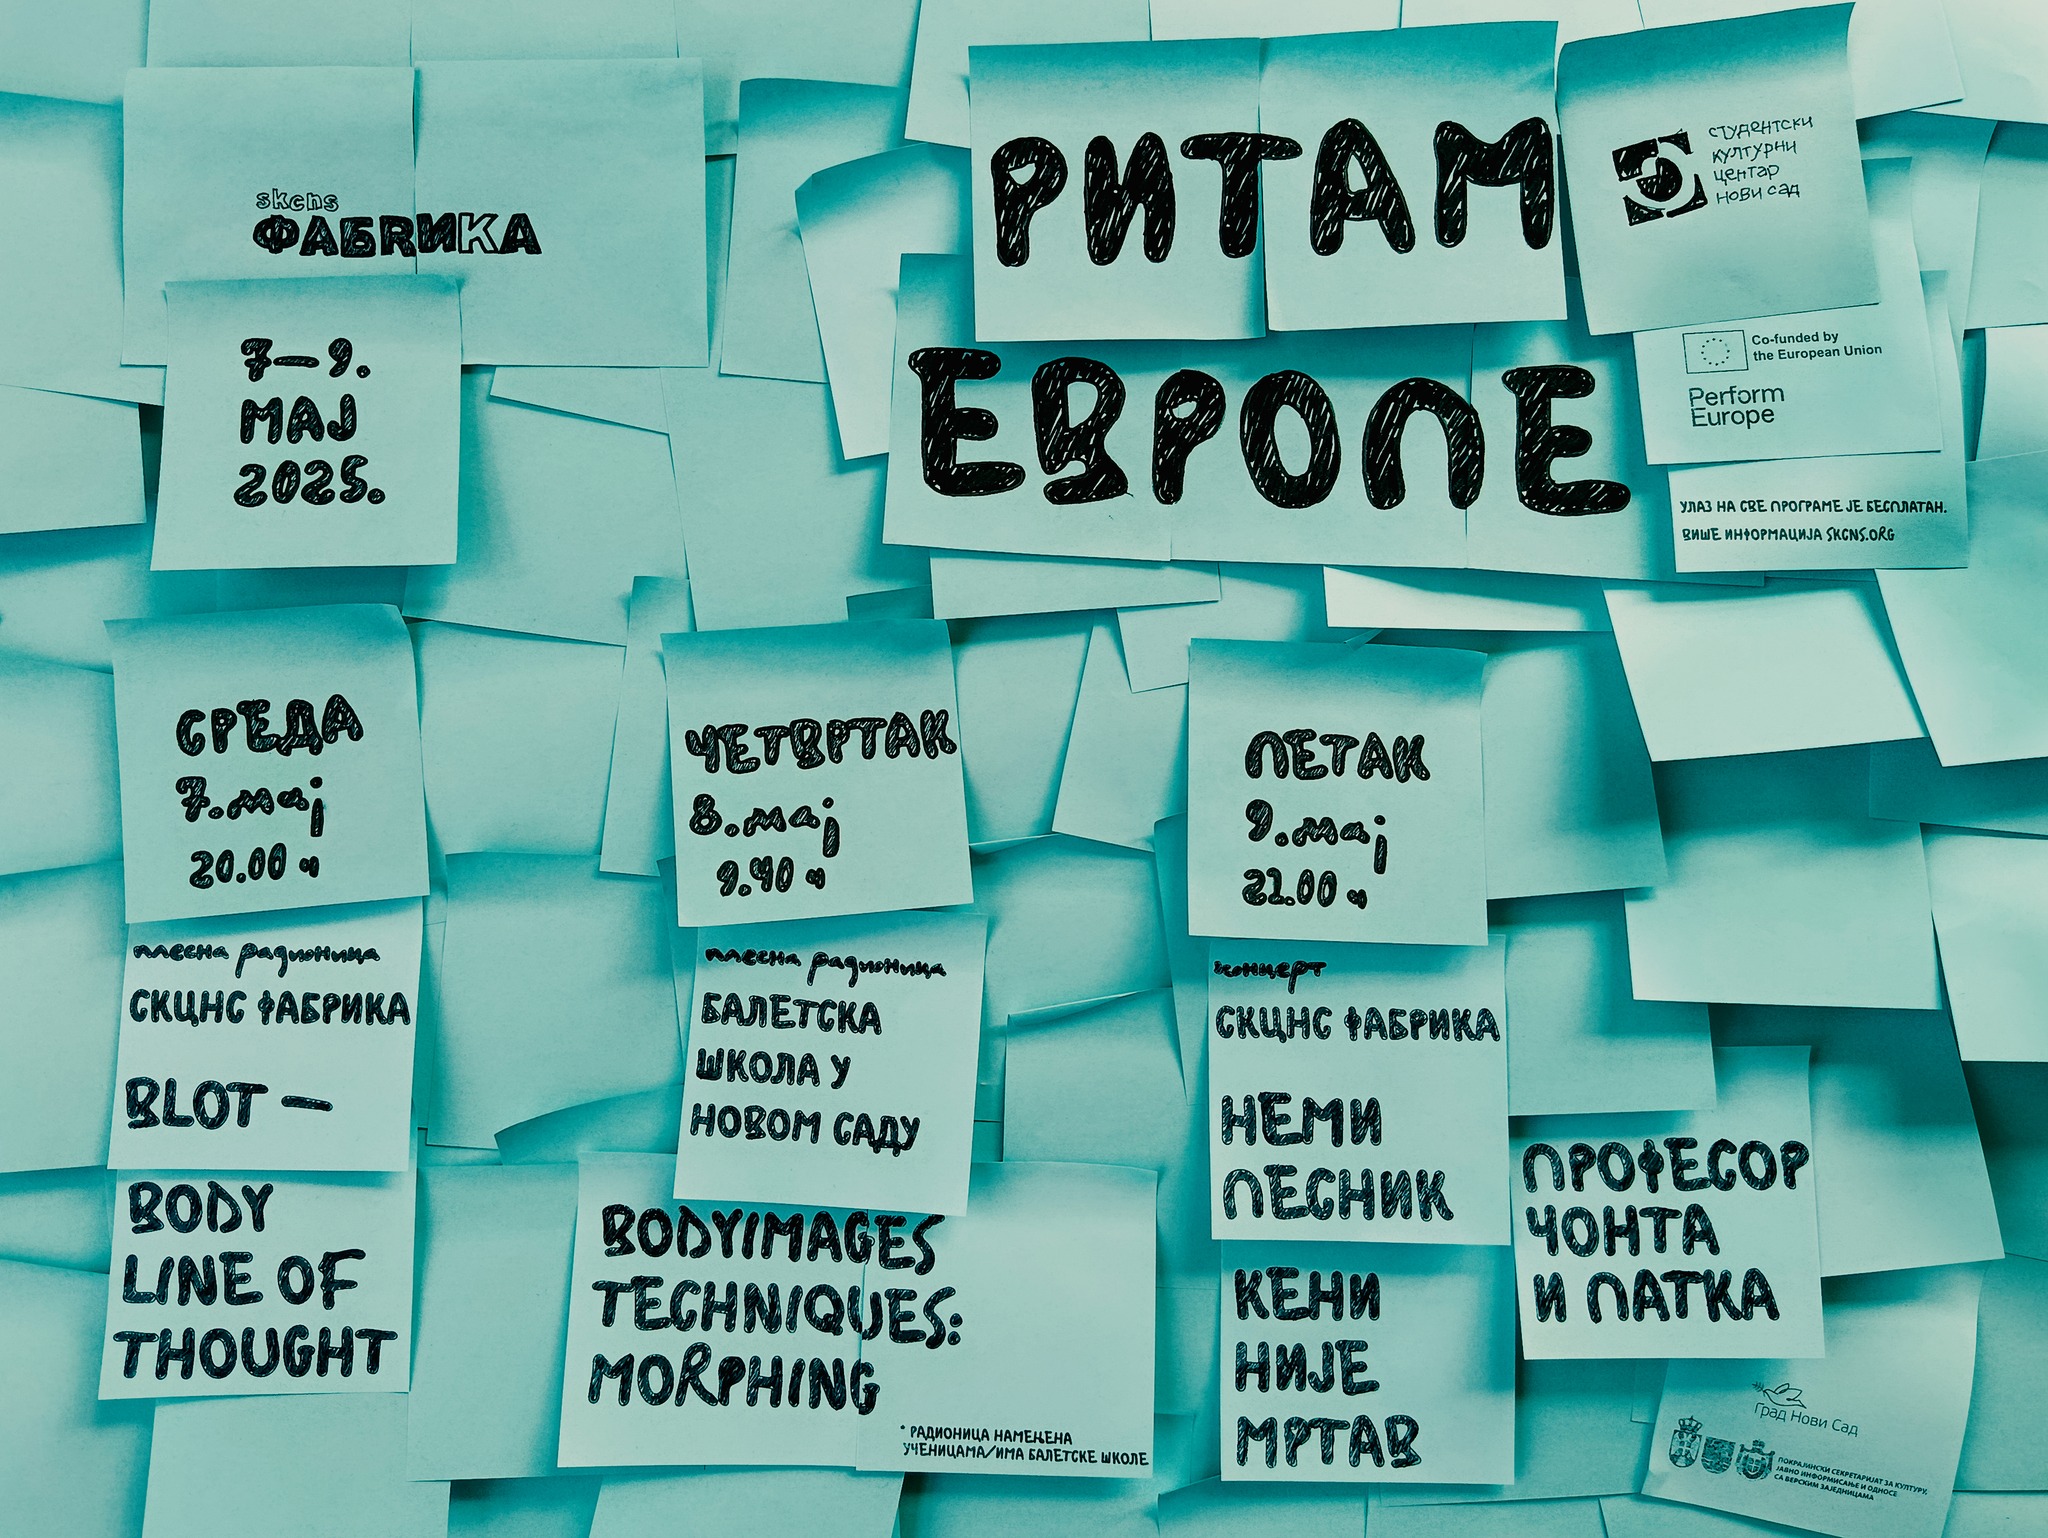 skcns
ФАБRИКА
7—9.
МАЈ
2025.
РИТАМ
ЕВРОПЕ
СТУДЕНТСКИ
КУЛТУРНИ
ЦЕНТАР
НОВИ САД
Co-funded by
the European Union
Perform
Europe
УЛАЗ НА СВЕ ПРОГРАМЕ ЈЕ БЕСПЛАТАН.
ВИШЕ ИНФОРМАЦИЈА SKCNS.ORG
СРЕДА
7. мај
20.00 ч
плесна радионица
СКЦНС ФАБРИКА
BLOT —
BODY
LINE OF
THOUGHT
ЧЕТВРТАК
8. мај
9.40 ч
плесна радионица
БАЛЕТСКА
ШКОЛА У
НОВОМ САДУ
BODYIMAGES
TECHNIQUES:
MORPHING
* РАДИОНИЦА НАМЕЊЕНА
УЧЕНИЦАМА/ИМА БАЛЕТСКЕ ШКОЛЕ
ПЕТАК
9. мај
21.00 ч
концерт
СКЦНС ФАБРИКА
НЕМИ
ПЕСНИК
КЕНИ
НИЈЕ
МРТАВ
ПРОФЕСОР
ЧОНТА
И ПАТКА
Град Нови Сад
ПОКРАЈИНСКИ СЕКРЕТАРИЈАТ ЗА КУЛТУРУ,
ЈАВНО ИНФОРМИСАЊЕ И ОДНОСЕ
СА ВЕРСКИМ ЗАЈЕДНИЦАМА